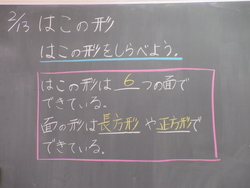 2/13 はこの形
はこの形をしらべよう。
はこの形は 6 つの面で
できている。
面の形は長方形や正方形で
できている。